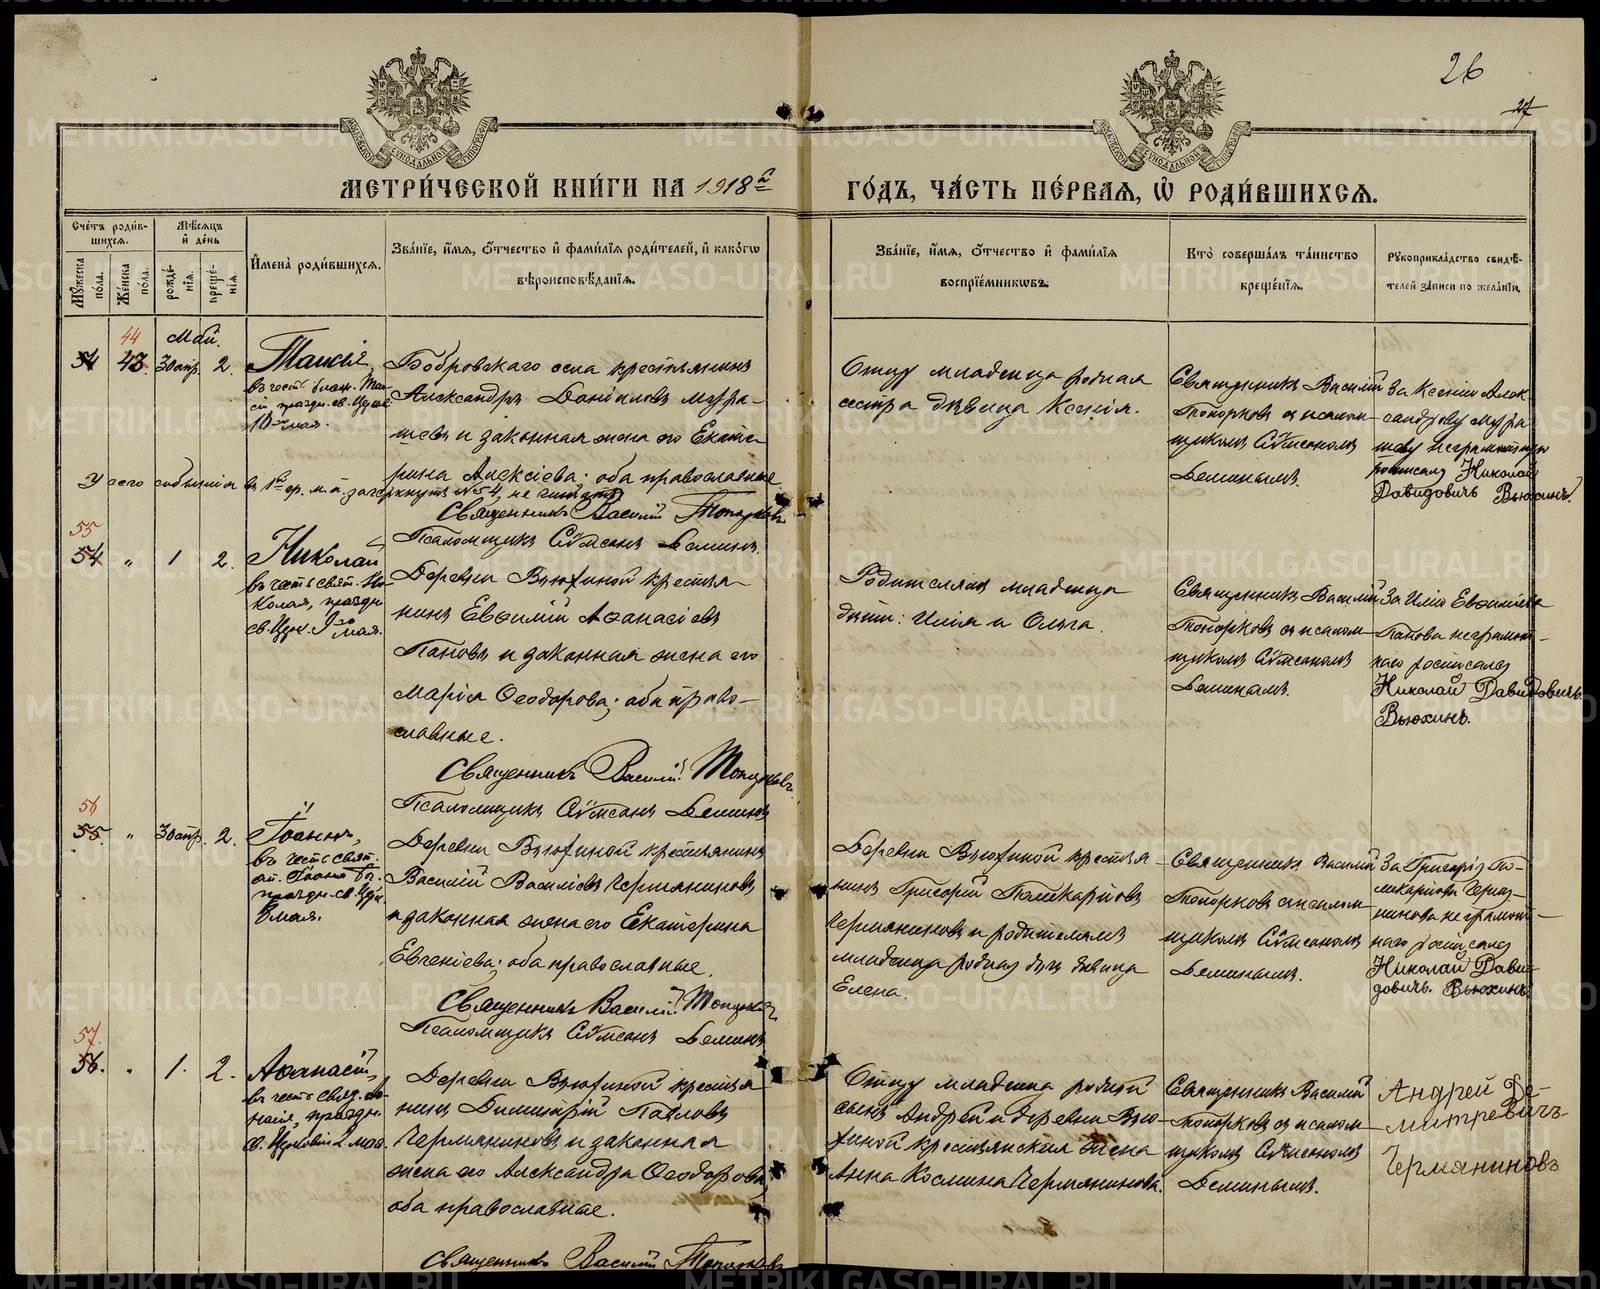 26
27
МЕТРИ́ЧЕСКОЙ КНИ́ГИ НА 1918й
ГО́ДЪ, ЧА́СТЬ ПЕ́РВАЯ, Ѡ҆ РОДИ́ВШИХСЯ.
Сче́тъ роди́вшихся.
Мѣ́сяцъ и҆ де́нь
И҆мена̀ роди́вшихся.
Зва́нїе, и҆́мя, ѻ҆́тчество и҆ фами́лїя роди́телей, и҆ како́гѡ
вѣроисповѣ́данїя.
Му́жеска по́ла.
Же́нска по́ла.
рожде́нїя.
креще́нїя.
Зва́нїе, и҆́мя, ѻ҆́тчество и҆ фами́лїя
воспрїе́мниковъ.
Кто̀ соверша́лъ та́инство
креще́нїя.
Рукоприкла́дство свидѣ́-
телей за́писи по жела́нїю.
44
Май.
54 43. 30 апр. 2.
Таисія,
въ честь блаж. Таи-
сіи праздн. св. Церк.
10го мая.
Бобровскаго села крестьянинъ
Александръ Даніиловъ Мура-
шевъ и законная жена его Екате-
рина Алексіева; оба православные
У сего событія въ 1й гр. м. п. зачеркнутъ №54, не читать
Священникъ Василій Топорковъ
Псаломщикъ Сѵмеонъ Деминъ
Отцу младенца родная
сестра дѣвица Ксенія.
Священникъ Василій
Топорковъ съ псалом-
щикомъ Сѵмеономъ
Деминымъ.
За Ксенію Алек-
сандрову Мура-
шеву неграмотную
росписался Николай
Давидовичъ Вьюхинъ.
55
54 " 1 2.
Николай
въ честь свят. Ни-
колая, праздн.
св. Церк. 9го мая.
Деревни Вьюхиной крестья-
нинъ Евѳимій Аѳанасіевъ
Пановъ и законная жена его
Марія Ѳеодорова; оба право-
славные.
Священникъ Василій Топорковъ
Псаломщикъ Сѵмеонъ Деминъ
Родителямъ младенца
дѣти: Илія и Ольга.
Священникъ Василій
Топорковъ съ псалом-
щикомъ Сѵмеономъ
Деминымъ.
За Илію Евѳиміева
Панова неграмот-
наго росписался
Николай Давидовичъ
Вьюхинъ.
56
55. " 30 апр. 2.
Іоаннъ,
въ честь свят.
ап. Іоанна Бог.
праздн. св. Церк.
8 мая.
Деревни Вьюхиной крестьянинъ
Василій Василіевъ Черманиновъ
и законная жена его Екатерина
Евгеніева; оба православные.
Священникъ Василій Топорковъ
Псаломщикъ Сѵмеонъ Деминъ
Деревни Вьюхиной крестья-
нинъ Григорій Поликарповъ
Черманиновъ и родителямъ
младенца родная дочь дѣвица
Елена.
Священникъ Василій
Топорковъ съ псалом-
щикомъ Сѵмеономъ
Деминымъ.
За Григорія По-
ликарпова Черма-
нинова неграмот-
наго росписался
Николай Дави-
довичъ. Вьюхинъ.
57.
56. " 1. 2.
Аѳанасій,
въ честь свящ. Аѳа-
насія, праздн.
св. Церковію 2 мая.
Деревни Вьюхиной крестья-
нинъ Димитрій Павловъ
Черманиновъ и законная
жена его Александра Ѳеодорова;
оба православные.
Священникъ Василій Топорковъ
Отцу младенца родной
сынъ Андрей и деревни Вью-
хиной крестьянская жена
Анна Космина Черманинова.
Священникъ Василій
Топорковъ съ псалом-
щикомъ Сѵмеономъ
Деминымъ.
Андрей Де-
митревичъ
Черманиновъ
METRIKI.GASO-URAL.RU